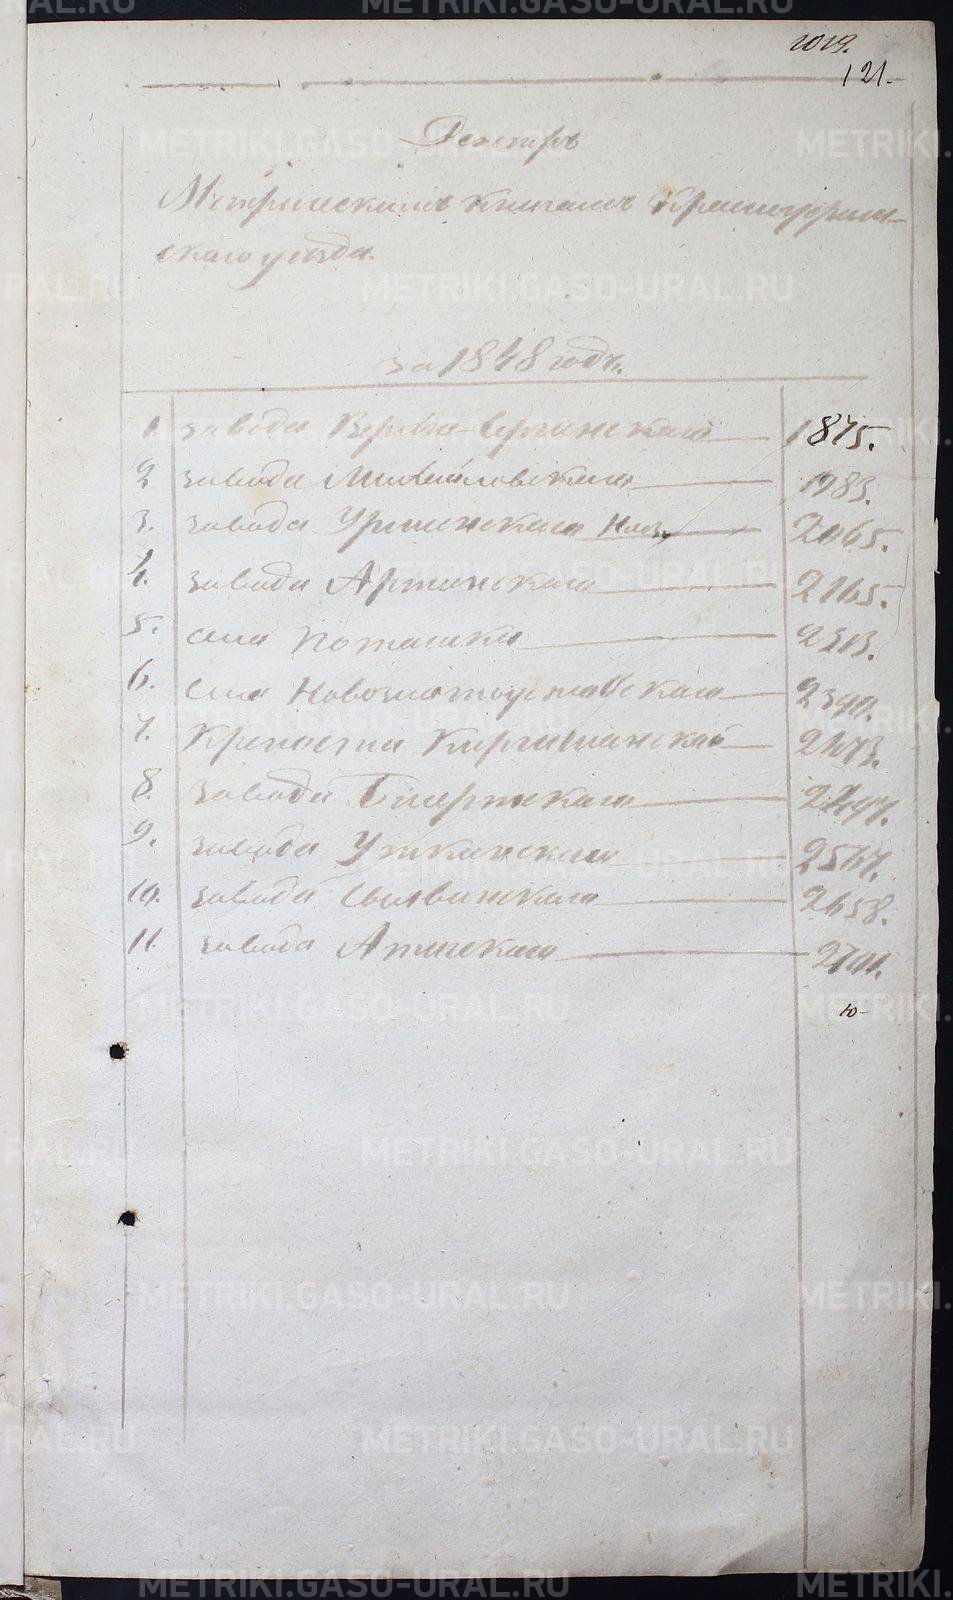 1019.
121.
Реестръ
Метрическимъ книгамъ Красноуфим-
скаго уезда.
за 1848 годъ.
1. завода Верхне-Сергинскаго 1875.
2 завода Михайловскаго 1983.
3. завода Уфимскаго 2065.
4. завода Артинскаго 2165.
5. села Поташки 2313.
6. села Новозлатоустовскаго
7. Крепости Киргишанской 2473.
8. завода Бисертскаго
9. завода Уткинскаго
10. завода Сылвинскаго 2658.
11. завода Атигскаго
METRIKI.GASO-URAL.RU